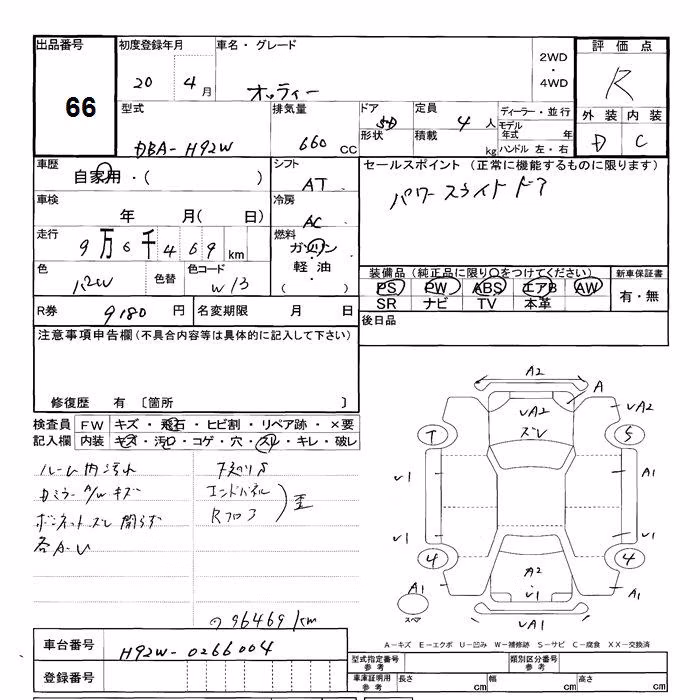 出品番号 66
初度登録年月 20 4月
車名・グレード オッティー
2WD・4WD
評価点 R
外装 内装
D C
型式 DBA-H92W
排気量 660 CC
ドア 5D
形状
定員 4 人
積載 kg
ディーラー・並行
モデル年式 年
ハンドル 左・右
車歴 自家用・( )
シフト AT
セールスポイント (正常に機能するものに限ります)
パワースライドドア
車検 年 月( 日)
冷房 AC
走行 9万6千469 km
燃料 ガソリン
軽油・( )
色
色替
色コード W13
装備品 (純正品に限り○をつけてください)
PS PW ABS エアB AW
SR ナビ TV 本革
新車保証書 有・無
R券 9180 円
名変期限 月 日
後日品
注意事項申告欄 (不具合内容等は具体的に記入して下さい)
修復歴 有 〔箇所 〕
検査員記入欄
FW キズ・飛石・ヒビ割・リペア跡・×要
内装 キズ・汚レ・コゲ・穴・スレ・キレ・破レ
ルーム内汚れ
ドミラー A/W キズ
ボンネットズレ 開らず
各A・U
エンドパネル
Rフロア
歪
96469km
A2
A
UA2
ズレ
UA2
T
5
U1
A1
U1
U1
4
4
A2
U1
A1
A1
スペア
UA1
A-キズ E-エクボ U-凹み W-補修跡 S-サビ C-腐食 XX-交換済
車台番号 H92W-0266004
登録番号
型式指定番号 参考
類別区分番号 参考
車庫証明用 参考
長さ cm
幅 cm
高さ cm